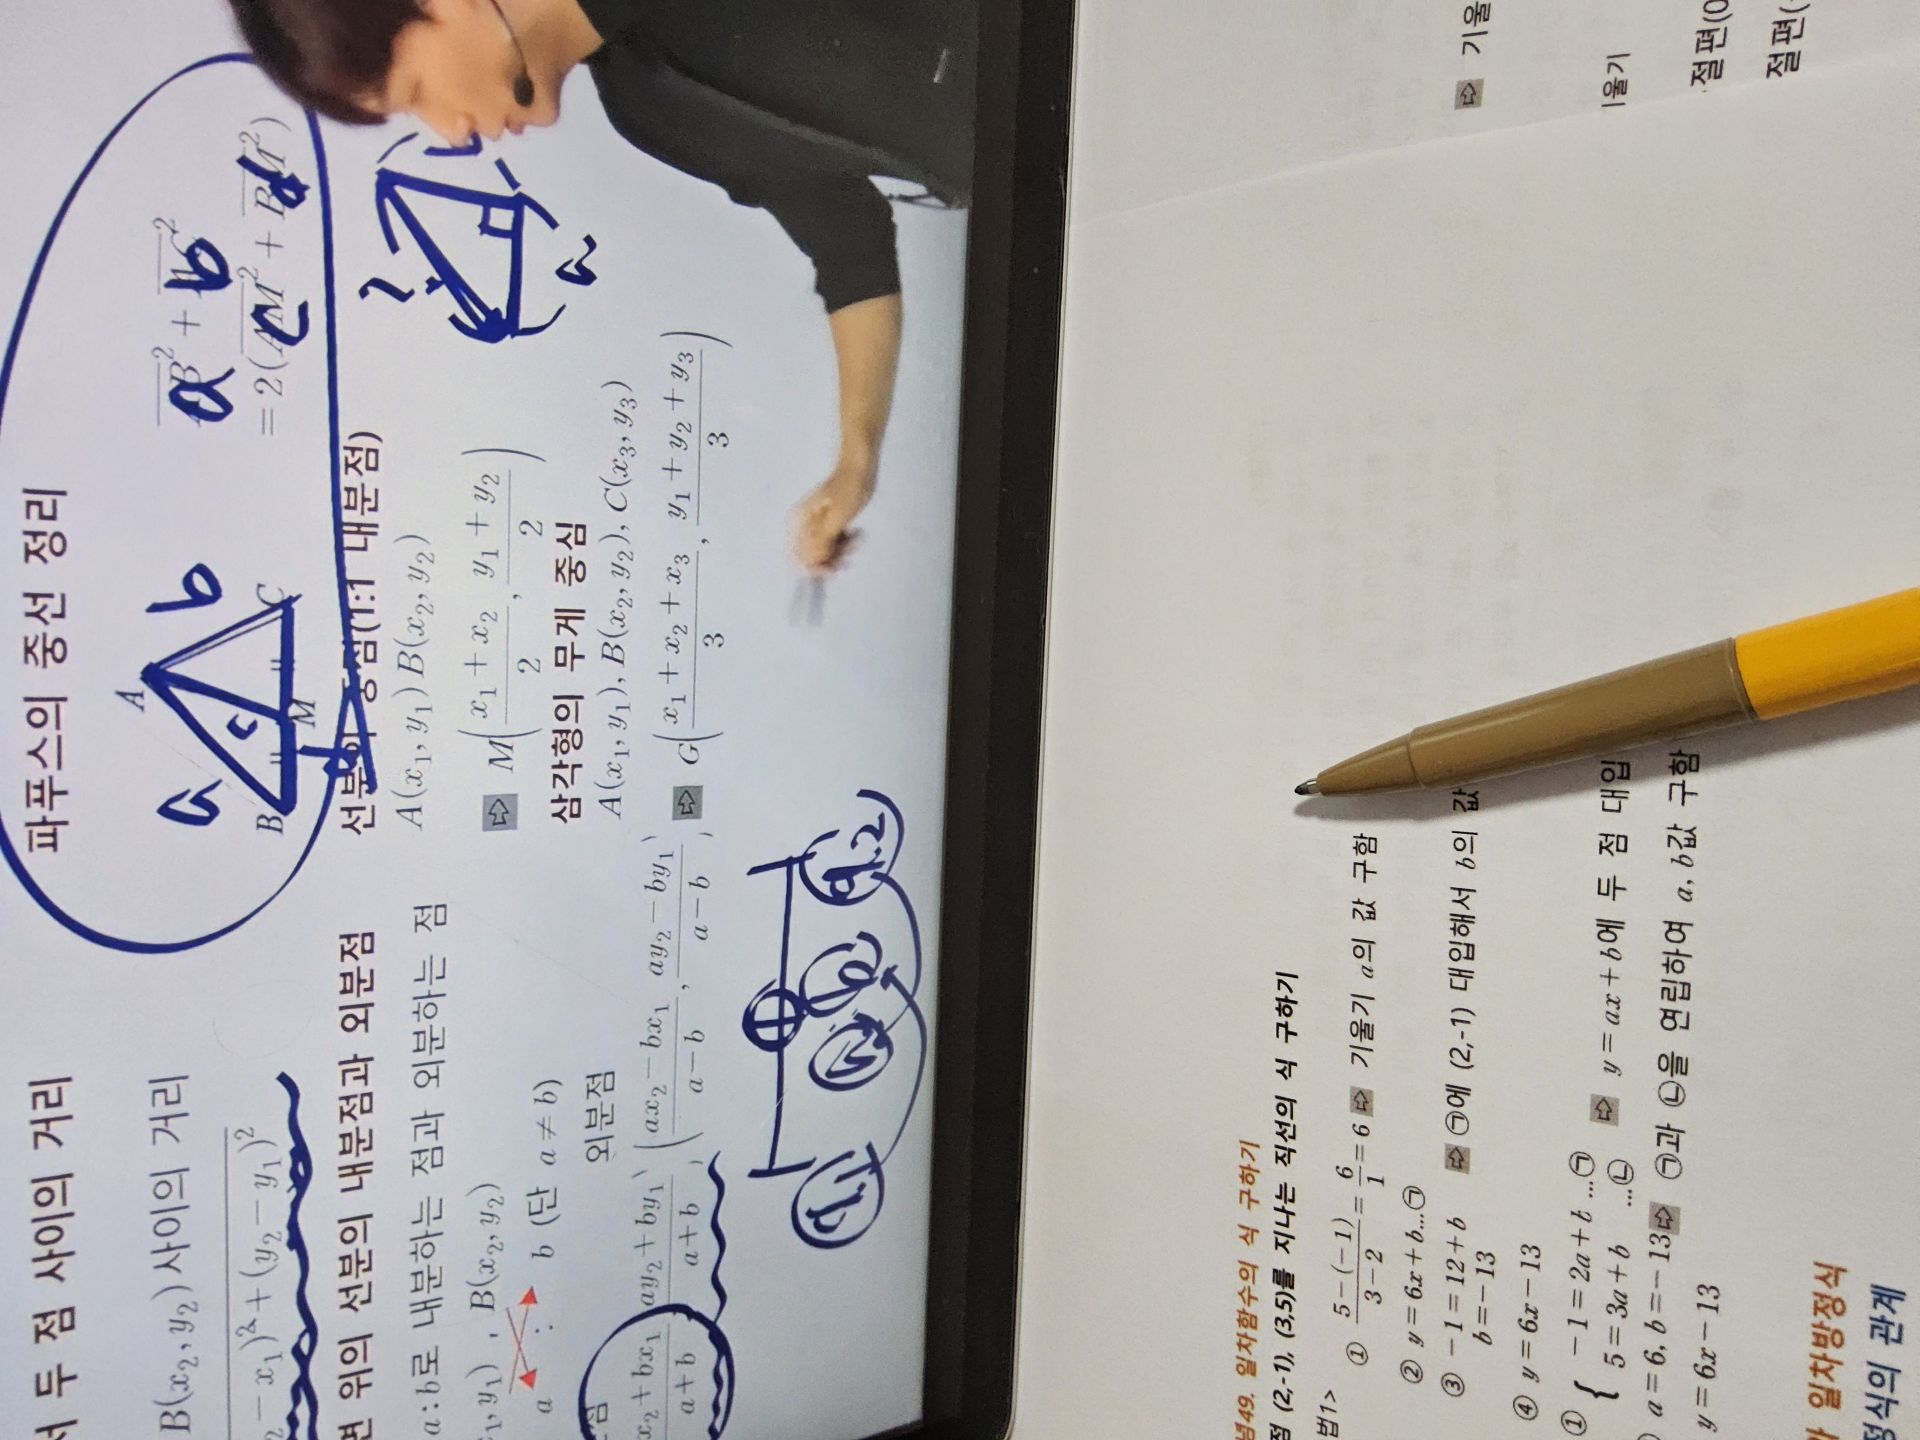 서 두 점 사이의 거리
B(x₂, y₂) 사이의 거리
₂ − x₁)² + (y₂ − y₁)²
면 위의 선분의 내분점과 외분점
a : b로 내분하는 점과 외분하는 점
₁, y₁) , B(x₂, y₂)
a : b (단 a ≠ b)
외분점
x₂ + bx₁ / a + b , ay₂ + by₁ / a + b
( ax₂ − bx₁ / a − b , ay₂ − by₁ / a − b )
파푸스의 중선 정리
A
B M C
a b c
a b
= 2( c
선분의 중점(1:1 내분점)
A(x₁, y₁) B(x₂, y₂)
⇨ M( x₁ + x₂ / 2 , y₁ + y₂ / 2 )
삼각형의 무게 중심
A(x₁, y₁), B(x₂, y₂), C(x₃, y₃)
⇨ G( x₁ + x₂ + x₃ / 3 , y₁ + y₂ + y₃ / 3 )
49. 일차함수의 식 구하기
점 (2,-1), (3,5)를 지나는 직선의 식 구하기
법1>
① 5 − (−1) / 3 − 2 = 6 / 1 = 6 ⇨ 기울기 a의 값 구함
② y = 6x + b…㉠
③ −1 = 12 + b ⇨ ㉠에 (2,-1) 대입해서 b의 값
b = −13
④ y = 6x − 13
① { −1 = 2a + b …㉠
5 = 3a + b …㉡ ⇨ y = ax + b에 두 점 대입
a = 6, b = −13 ⇨ ㉠과 ㉡을 연립하여 a, b값 구함
y = 6x − 13
일차방정식
정식의 관계
⇨ 기울
울기
절편(0
절편(